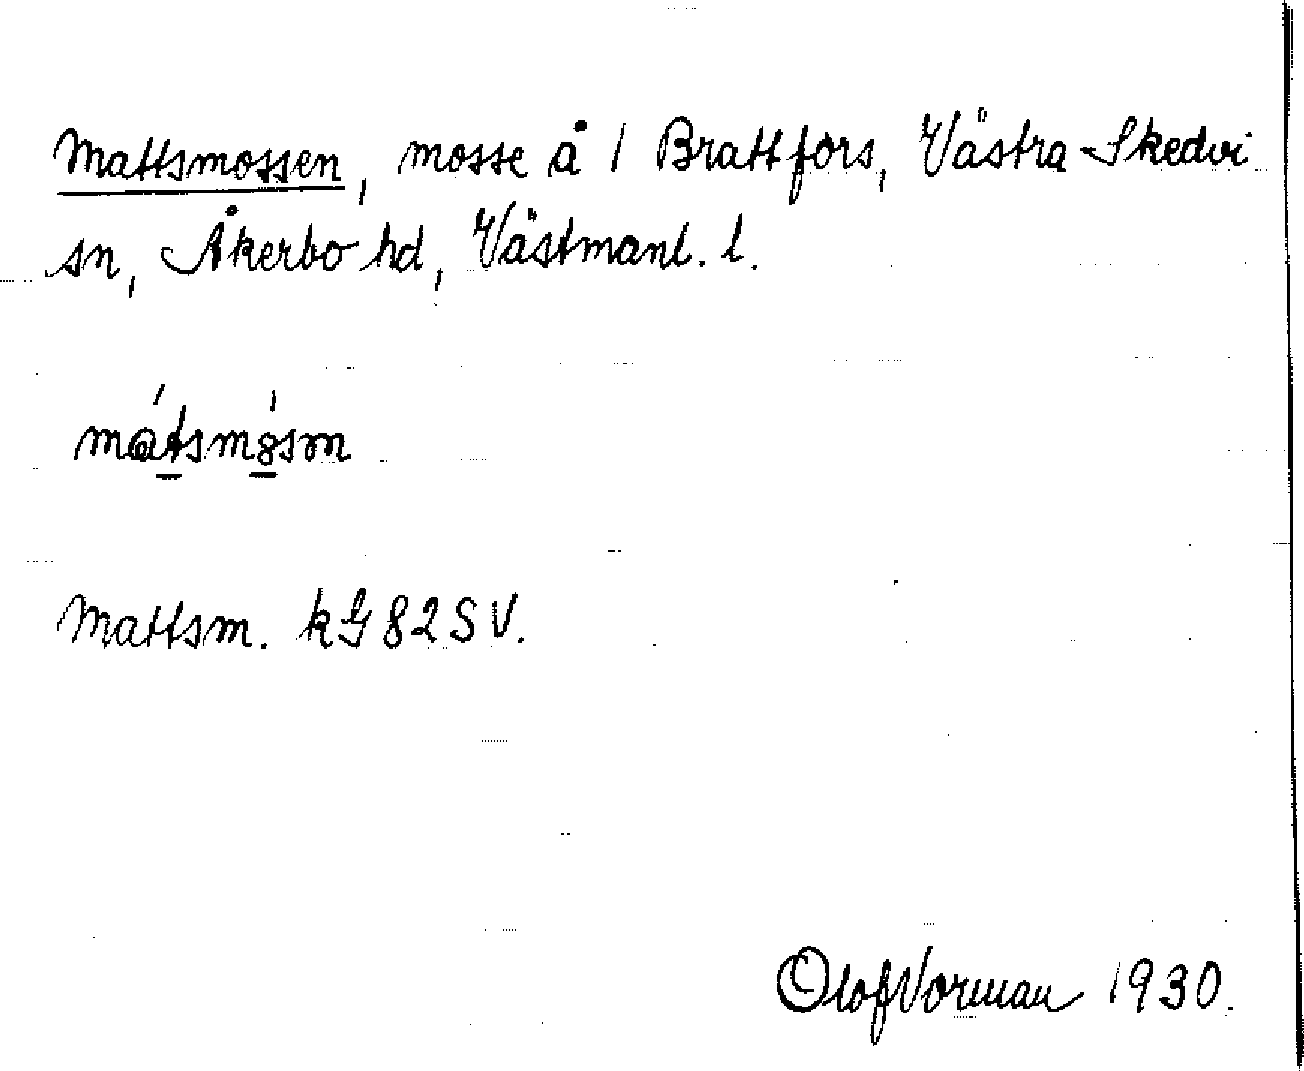 Mattsmossen, mosse å 1 Brattfors, Västra Skedvi
sn, Åkerbo hd, Västmanl. l.
mátsmósm
Mattsm. kG 82 SV.
Olof Vorman 1930.